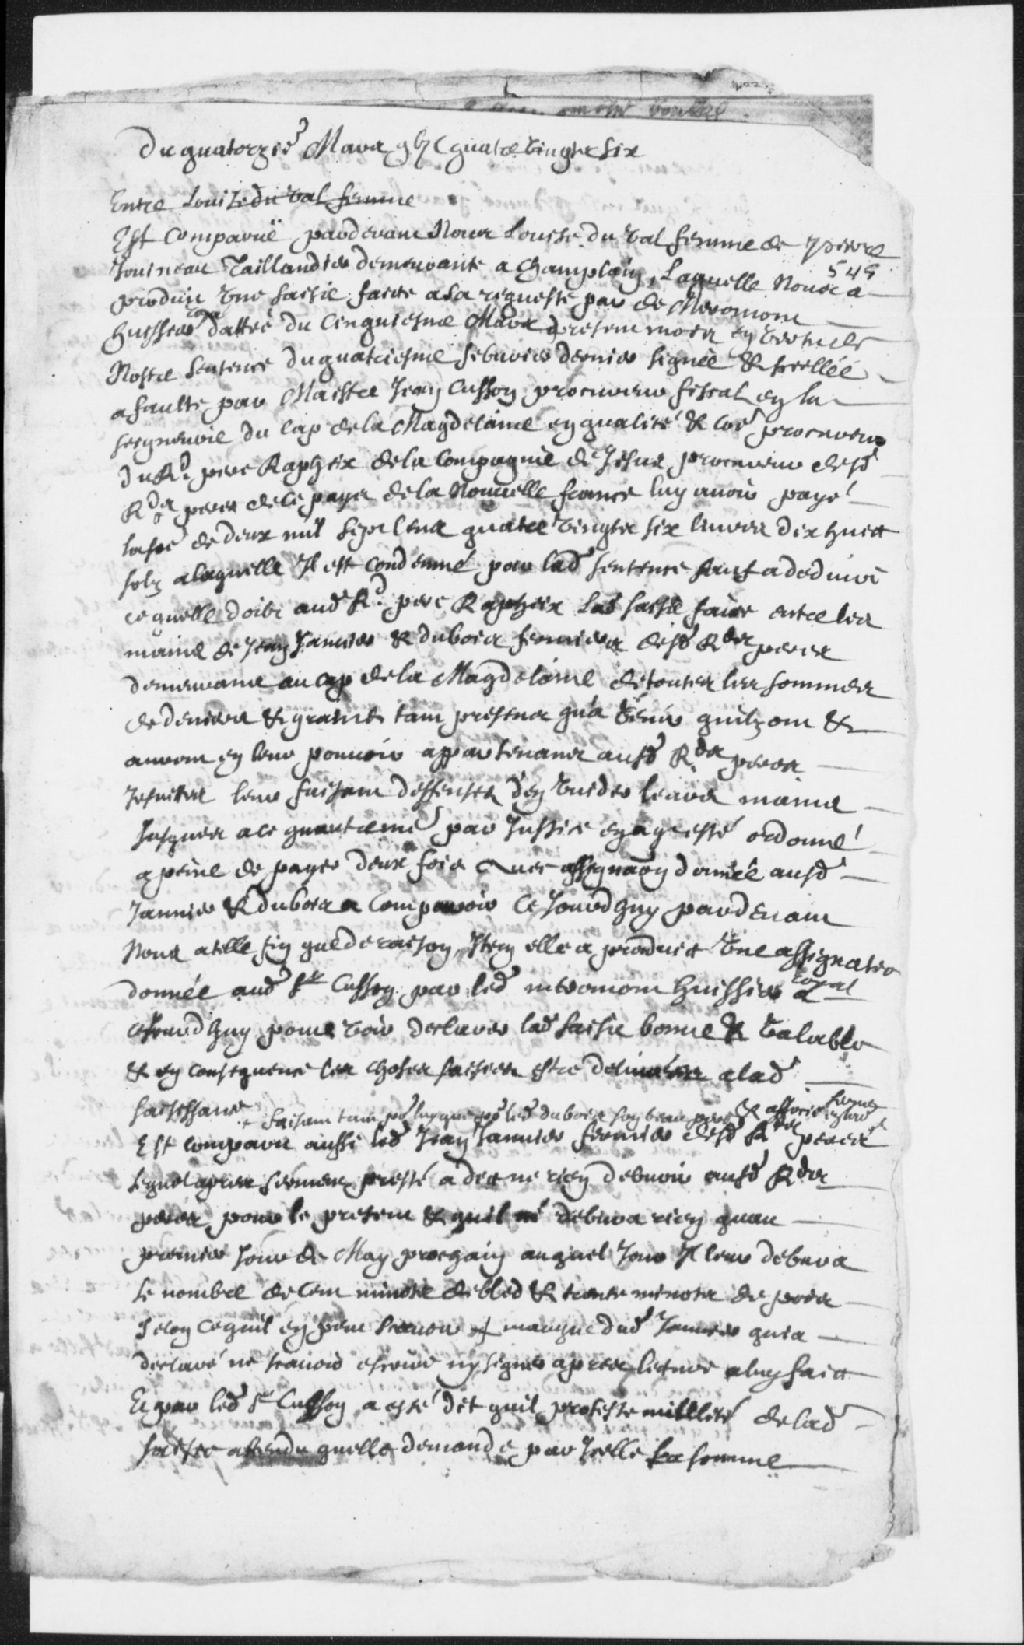 Du quatorzie Mars gbjc quatre vingts six
Entre Louize du val femme
Est Comparuë pardevant Nous Louise du Val femme de pierre
Jouineau Taillandier demeurante a Champlain, Laquelle Nous a
549
produit une saisie faicte a sa requeste par de Meromont
huissier dattée du Cinquiesme Mars present mois en vertu de
Nostre Sentence du quatriesme febvrier dernier signée & scellée
a faulte par Maistre Jean Cusson procureur fiscal en la
seigneurie du Cap de la Magdelaine en qualité & coe procureur
du Rd. pere Rapheix de la Compagnie de Jesus procureur desd
Rds peres de ce payx de la Nouvelle france luy avoir payé
la soe de deux mil sept Cens quatre vingts six livres dix huict
solz a laquelle Il est Condemné par lad sentence sauf a deduire
ce quelle doibt aud Rd. pere Rapheix Lad saisie faicte entre les
mains de Jean Jannier & dubois fermiers desd Rds peres
demeurants au cap de la Magdelaine de toutes les sommes
de deniers & grains tant presens qua venir quilz ont &
auront en leur pouvoir appartenans ausd Rds peres
Jesuites leur faisant deffenses d'en vuider leurs mains
Jusques a ce quautremt par Justice en aye esté ordonné
a peine de payer deux fois avec assignaon donnée ausd
Jannier & dubois a Comparoir Ce Jourdhuy pardevant
Nous a telle fin que de raison, Item elle a produict une assignatio
donnée aud Sr Cusson par led meromont huissier royal a
cejourdhuy pour voir declarer lad saisie bonne & valable
& en consequence les choses saisies estre delivrées a lad
saisissante
+ faisant tant po luy que po led dubois son beau pere & associé
Est comparu aussi led Jean Jannier fermier desd Rds peres
Lequel apres serment presté a dict ne rien debvoir ausd Rds
peres pour le present & quil ne debvra rien quau
premier Jour de May prochain auquel Jour Il leur debvra
le nombre de Cent minots de bled & trente minots de pois
selon ce quil en peut sçavoir & marque dud Jannier qui a
declaré ne scavoir escrire ny signer apres lecture a luy faict
Et par led Sr Cusson a esté dit quil proteste nullité de lad
saisie attendu quelle demande par Icelle la somme